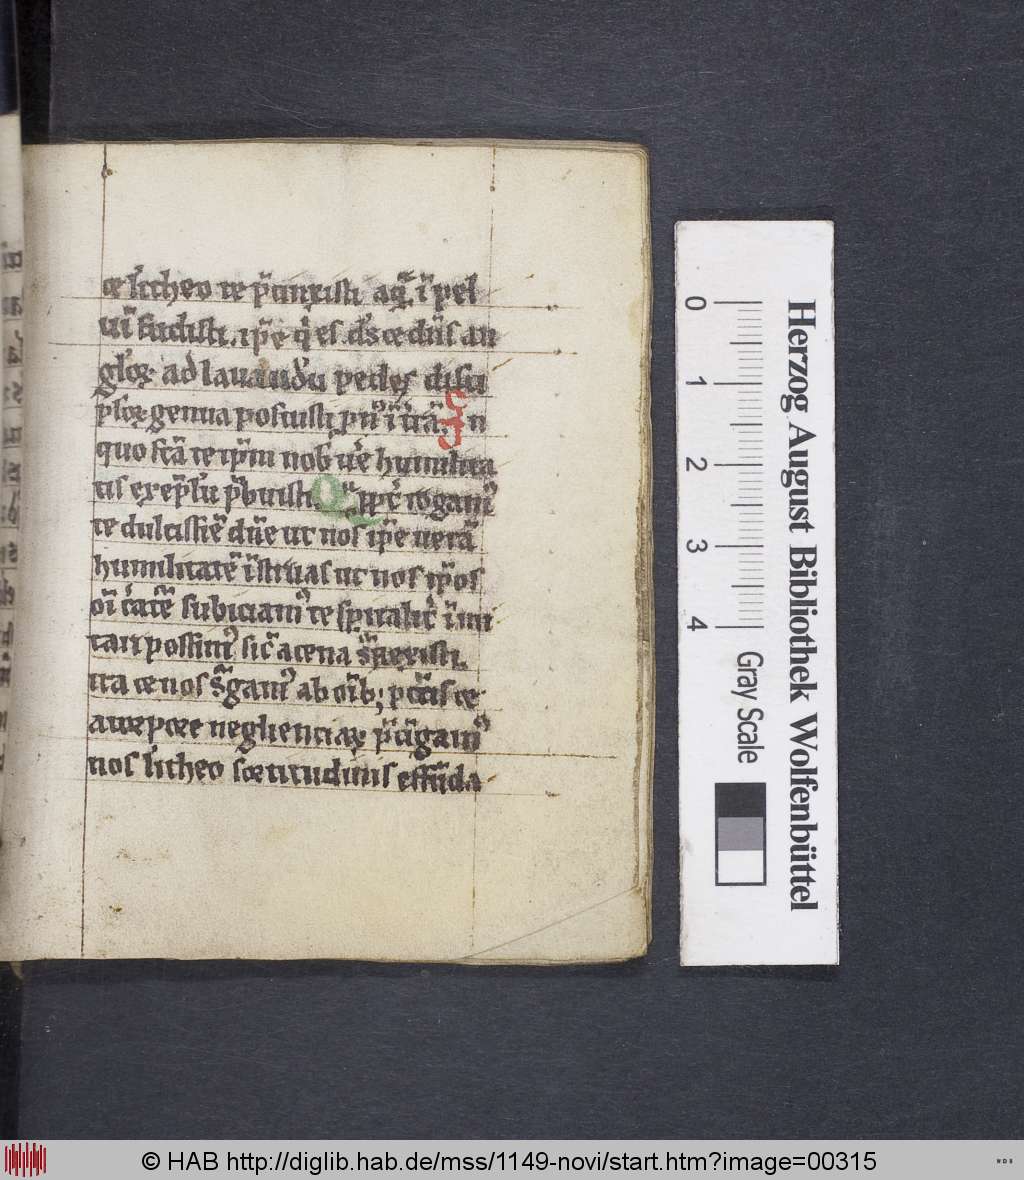 et lītheo te p̄cinxisti aq̄ ī pel
uī fudisti. ip̄e q̇ es ds̄ et dn̄s an
glo̤ꝝ ad lauandū pedes disci
pl̄oꝝ genua posuisti ī tr̄ā. In
quo fc̄ā te ip̄m nob̄ ue̅ humilita
tis exēplū p̄buisti. Q̄ ꝓpt̄ rogam᷒
te dulcissie̅ dn̄e ut nos ip̄e uerā
humilitatē īstruas ut nos ip̄os
oī subiciam᷒ te spūalit̄ īmi
tari possim᷒ sic̄ a cena s̄rexisti.
ita et nos s̄gam᷒ ab oīb; pctīs et
neglienciaꝝ
nos lītheo fortitudinis effūda
0
1
2
3
4
Herzog August Bibliothek Wolfenbüttel
Gray Scale
© HAB http://diglib.hab.de/mss/1149-novi/start.htm?image=00315